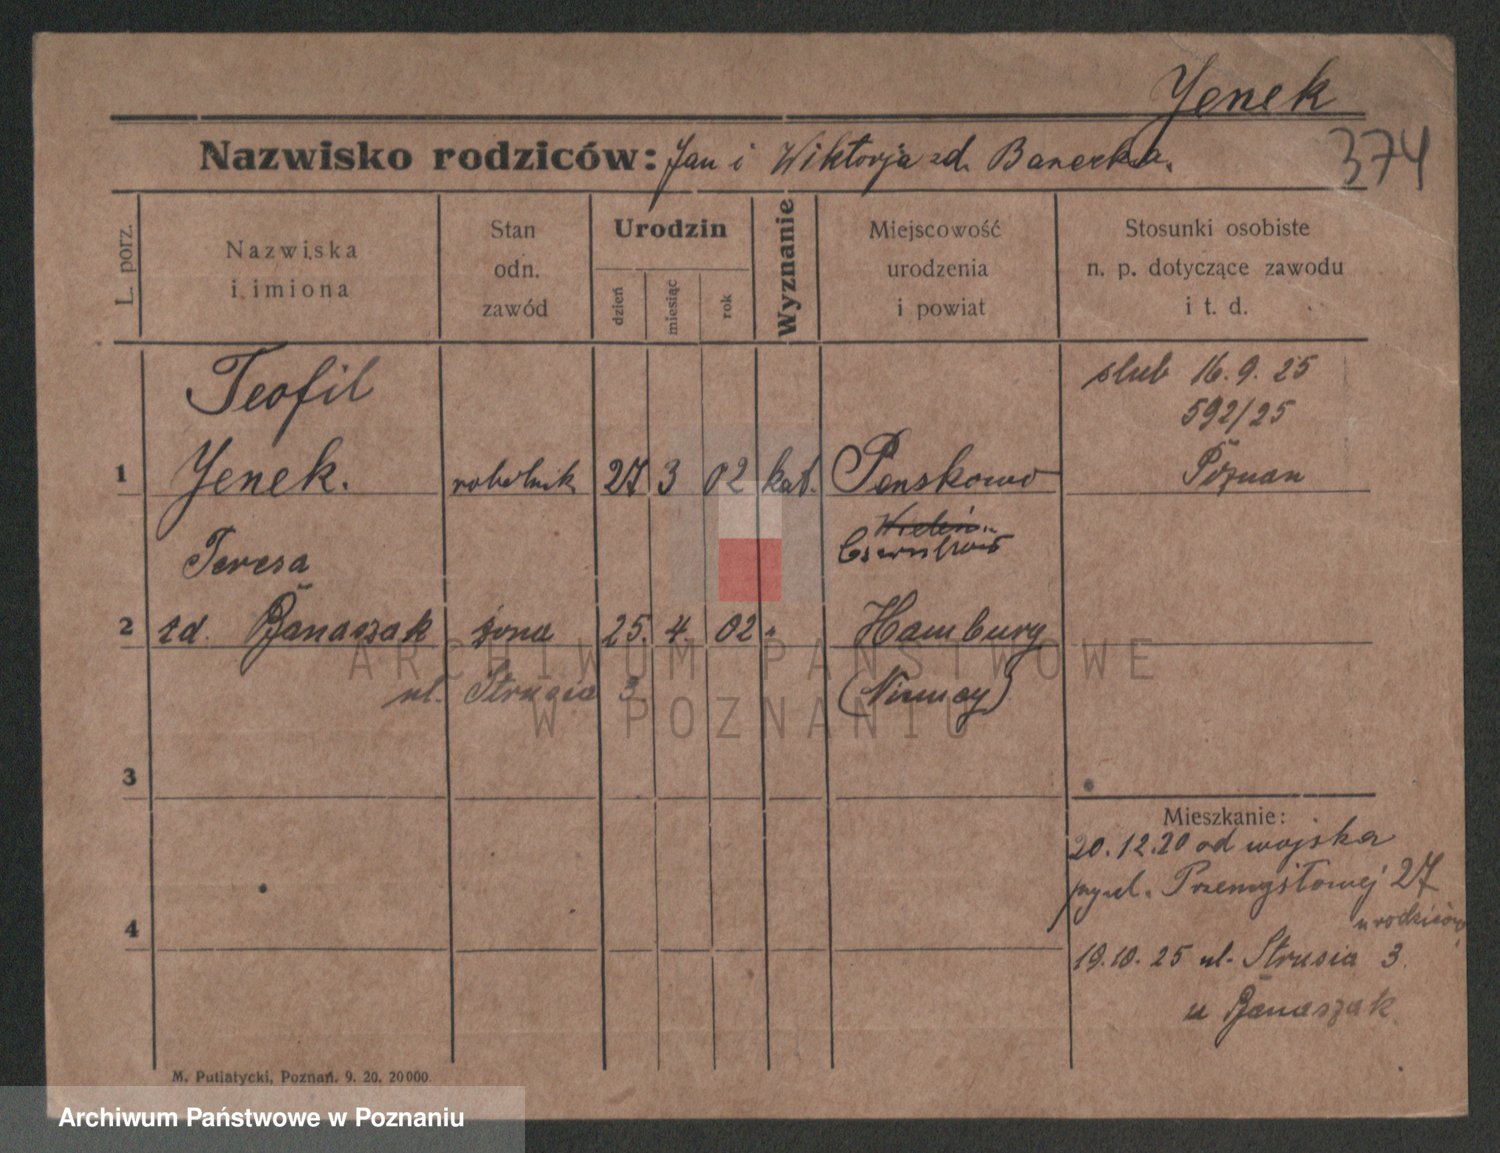 Jenek
374
Nazwisko rodziców: Jan i Wiktorja zd. Banecka.
L. porz.
Nazwiska
i imiona
Stan
odn.
zawód
Urodzin
dzień
miesiąc
rok
Wyznanie
Miejscowość
urodzenia
i powiat
Stosunki osobiste
n. p. dotyczące zawodu
i t. d.
Teofil
slub 16.9.25
592/25
1 Jenek. robotnik 27 3 02 kat. Penskowo Poznań
Wieleń
Czarnków
Teresa
2 zd. Banaszak żona 25. 4. 02 " Hamburg
ul. Strusia 3. (Niemcy)
3
Mieszkanie:
20.12.20 od wojska
przy ul. Przemysłowej 27
u rodziców
4
19.10.25 ul. Strusia 3.
u Banaszak
M. Putiatycki, Poznań. 9. 20. 20000.
ARCHIWUM PAŃSTWOWE
W POZNANIU
Archiwum Państwowe w Poznaniu